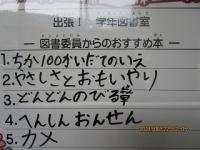 出張! 学年図書室
― 図書委員からのおすすめ本 ―
1.ちか100かいだてのいえ
2.やさしさとおもいやり
3.どんどんのびる草
4.へんしんおんせん
5.カメ